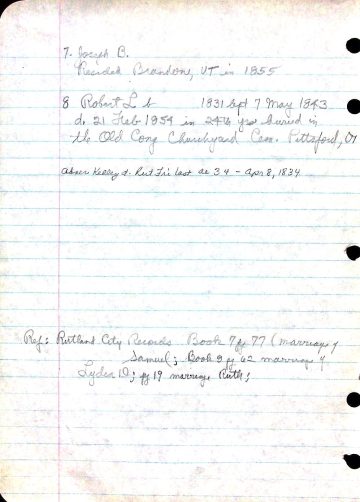 7. Joseph B.
Resided Brandon, VT in 1855
8 Robert L b 1831 bpt 7 May 1843
d. 21 Feb 1854 in 24th yr buried in
the Old Cong Churchyard Cem. Pittsford, VT
Abner Kelley d. Rut Fri last ae 34 - Apr 8, 1834
Ref: Rutland City Records Book 7 pg 77 (marriage of
Samuel; Book 9 pg 62 marriage of
Lydia D; pg 19 marriage Ruth;